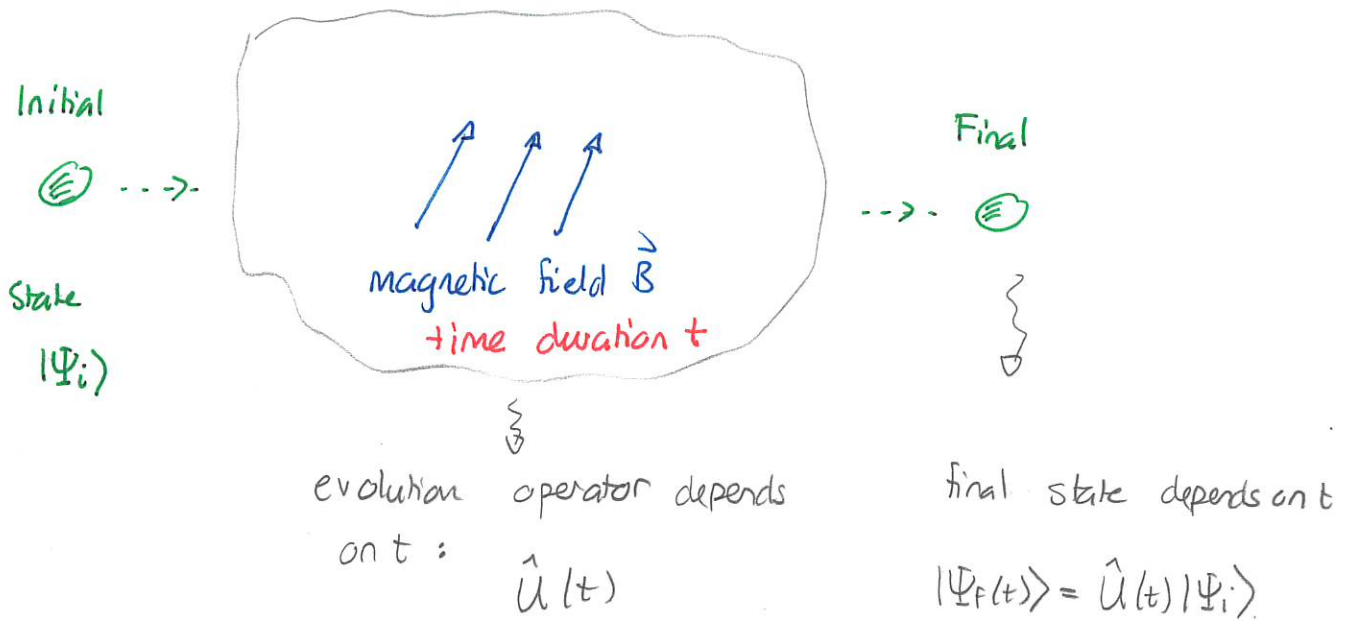 Initial
State
|Ψi⟩
magnetic field B⃗
time duration t
Final
evolution operator depends
on t :
Û(t)
final state depends on t
|Ψf(t)⟩ = Û(t)|Ψi⟩